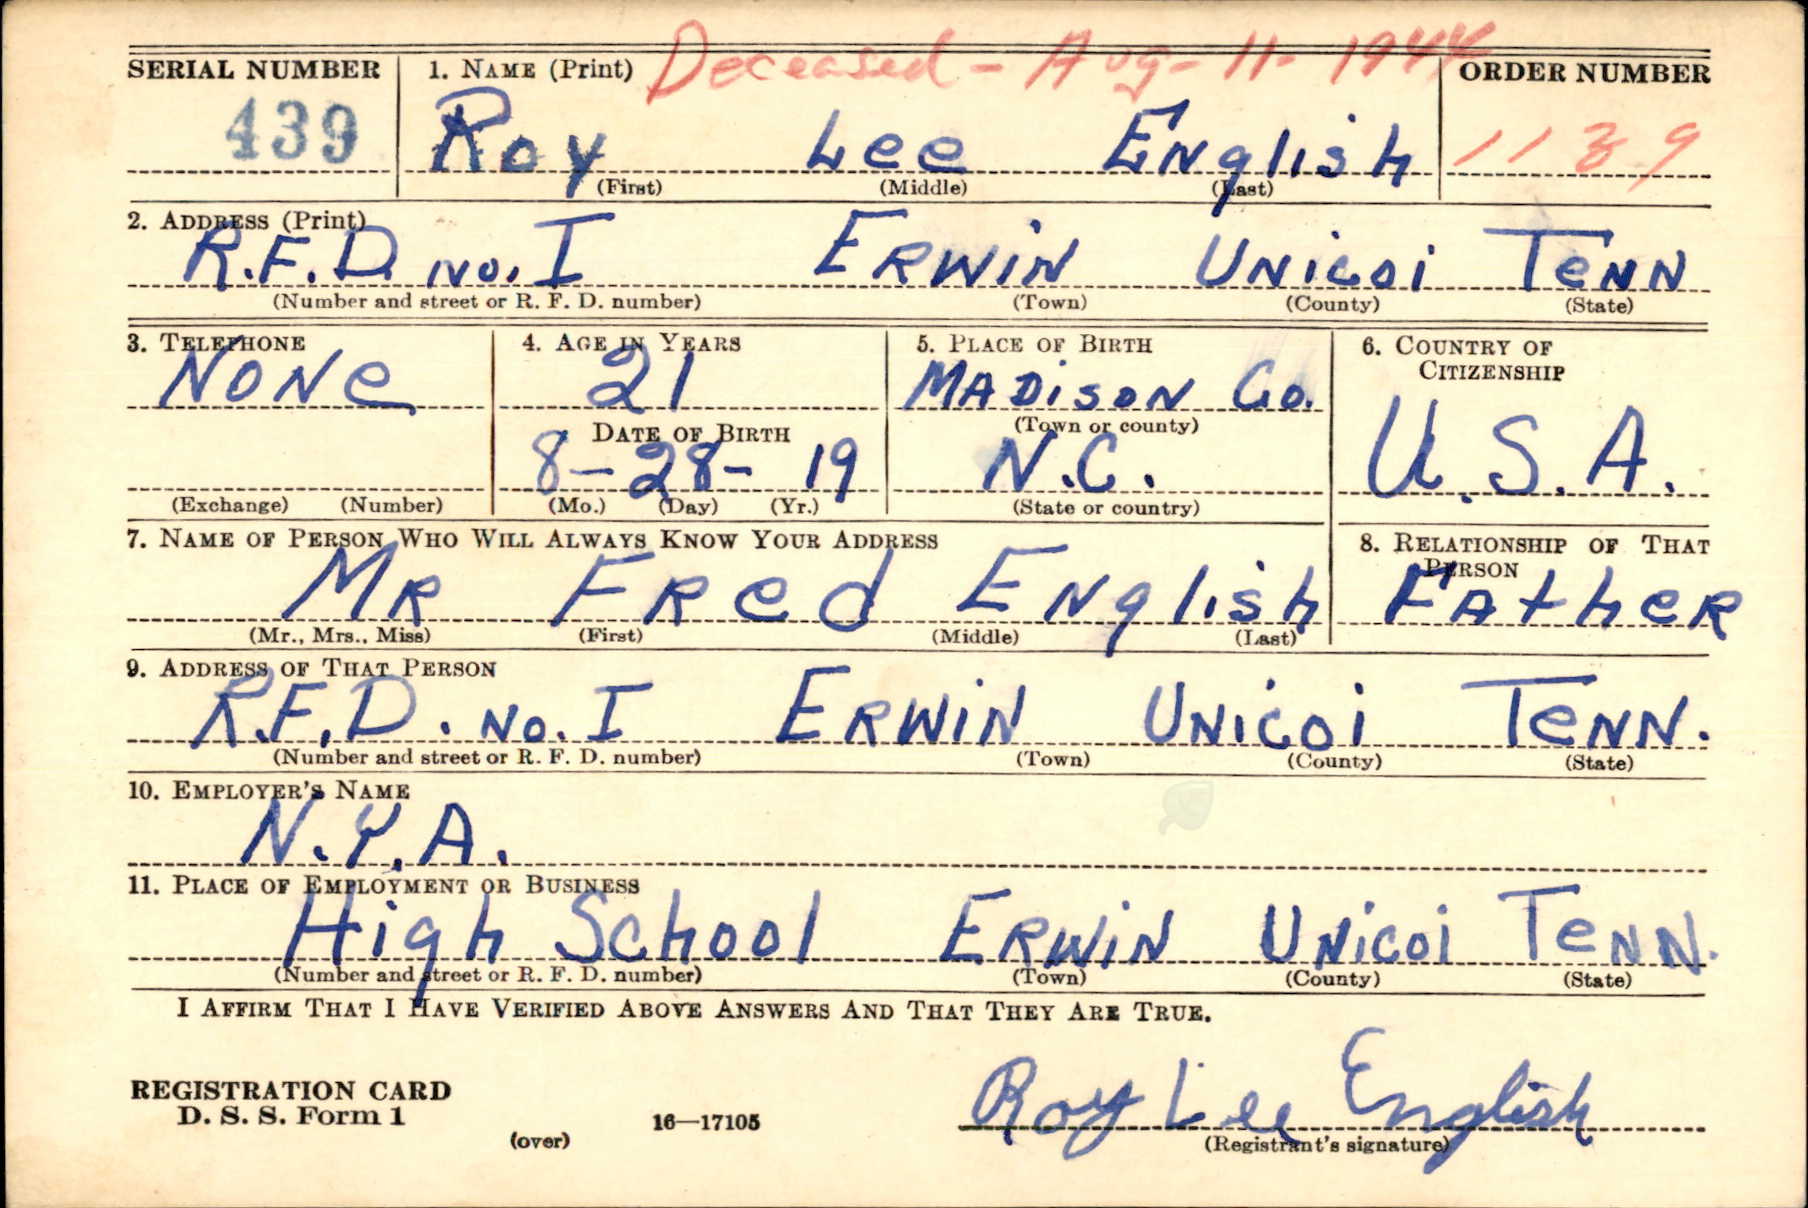 Deceased - Aug - 11 - 1944
SERIAL NUMBER 1. NAME (Print) ORDER NUMBER
439 Roy Lee English 1139
(First) (Middle) (Last)
2. ADDRESS (Print)
R.F.D. No. I Erwin Unicoi Tenn
(Number and street or R. F. D. number) (Town) (County) (State)
3. TELEPHONE 4. AGE IN YEARS 5. PLACE OF BIRTH 6. COUNTRY OF CITIZENSHIP
None 21 Madison Co. U.S.A.
(Town or county)
DATE OF BIRTH
8-28-19 N.C.
(Exchange) (Number) (Mo.) (Day) (Yr.) (State or country)
7. NAME OF PERSON WHO WILL ALWAYS KNOW YOUR ADDRESS 8. RELATIONSHIP OF THAT PERSON
Mr Fred English Father
(Mr., Mrs., Miss) (First) (Middle) (Last)
9. ADDRESS OF THAT PERSON
R.F.D. No. I Erwin Unicoi Tenn.
(Number and street or R. F. D. number) (Town) (County) (State)
10. EMPLOYER'S NAME
N.Y.A.
11. PLACE OF EMPLOYMENT OR BUSINESS
High School Erwin Unicoi Tenn.
(Number and street or R. F. D. number) (Town) (County) (State)
I AFFIRM THAT I HAVE VERIFIED ABOVE ANSWERS AND THAT THEY ARE TRUE.
REGISTRATION CARD
D. S. S. Form 1 16—17105 Roy Lee English
(over) (Registrant's signature)